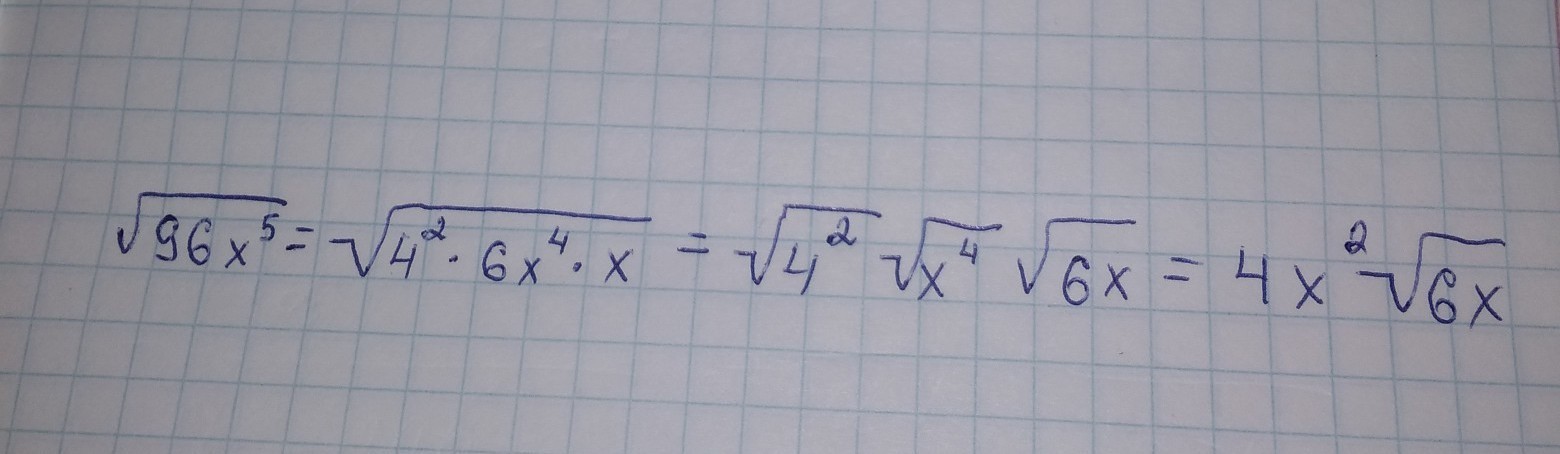 √96x⁵ = √4²·6x⁴·x = √4² √x⁴ √6x = 4x²√6x